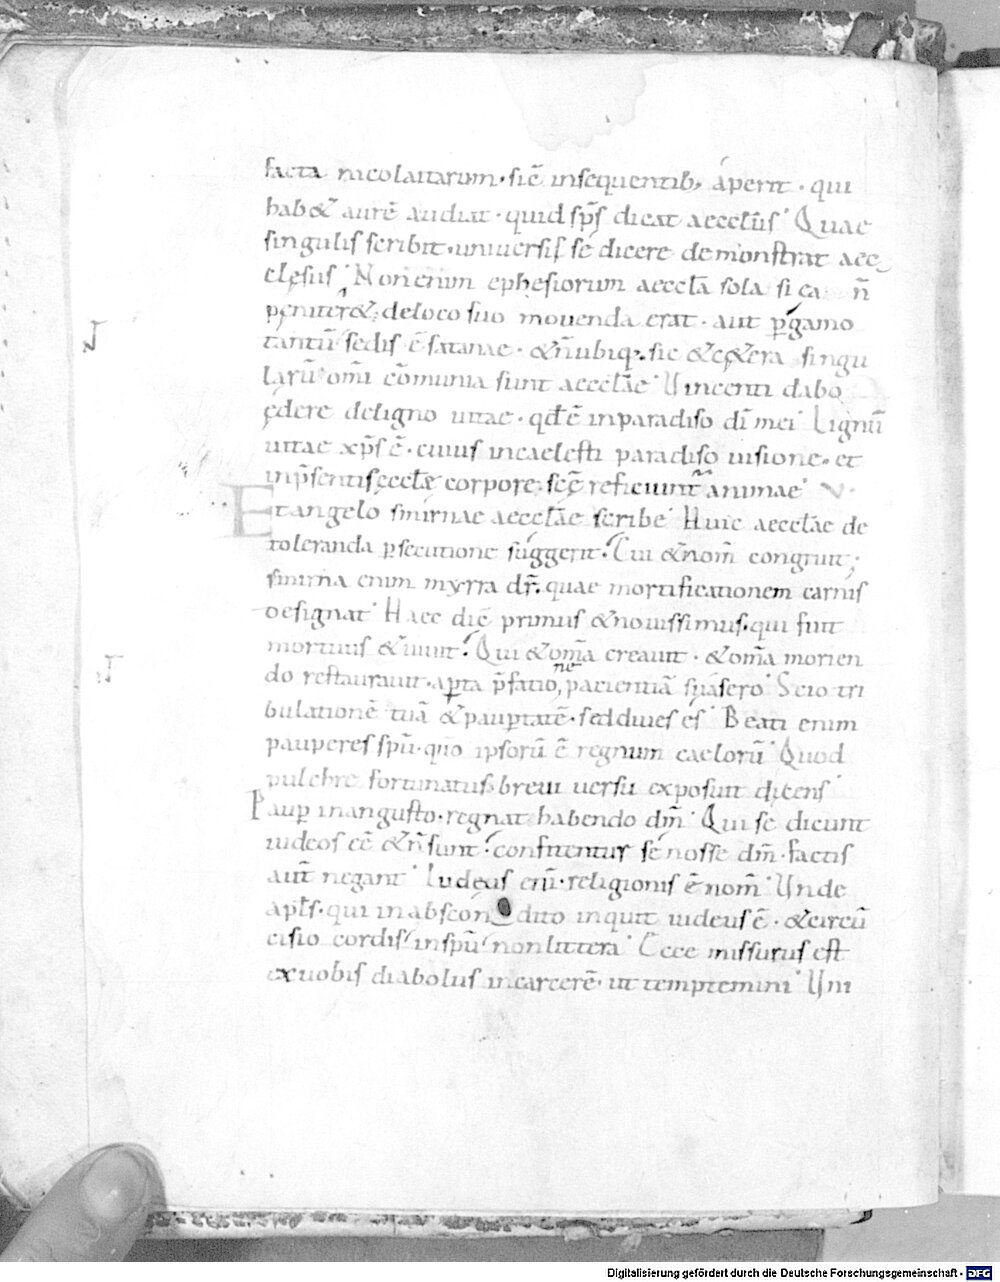 facta nicolaitarum · sic̄ insequentib; aperit · qui
hab& aurē audiat · quid sp̄s dicat aeccl̄iis Quae
singulis scribit · uniuersis se dicere demonstrat aec
clesiis Non enim ephesiorum aeccl̄a sola si ca n̄
peniter& de loco suo mouenda erat · aut pergamo
tantū sedis ē satanae · &n̄ubiq; sic &c&era singu
larū om̄i cōmunia sunt aeccl̄ae Uincenti dabo
edere deligno uitae · qd̄ ē inparadiso dī mei Lignū
uitae xp̄s ē · cuius incaelesti paradiso uisione · et
inp̄sentis eccl̄ę corpore · sc̄ę reficiunt animae V·
Et angelo smirnae aeccl̄ae scribe Huic aeccl̄ae de
toleranda p̱secutione suggerit · Cui &nom̄ congruit;
smirna enim myrra dr̄ · quae mortificationem carnis
designat Haec dic̄ primus &nouissimus · qui fuit
mortuus &uiuit · Qui &om̄a creauit · &om̄a morien
do restaurauit · ap̱ta p̄fatione pacientiā suasero Scio tri
bulationē tuā &paup̱tatē · sed diues es Beati enim
pauperes spū · qm̄o ipsorū ē regnum caelorū Quod
pulchre fortunatus breui uersu exposuit dicens
Paup̱ inangusto · regnat habendo dm̄ Qui se dicunt
iudeos eē &n̄ sunt · confitentur se nosse dm̄ · factis
aut̄ negant Iudeus enī · religionis ē nom̄ Unde
apls̄ · qui inabscon dito inquit iudeus ē · &circū
cisio cordis inspū non littera Ecce missurus est
ex uobis diabolus in carcerē · ut temptemini Uni
Digitalisierung gefördert durch die Deutsche Forschungsgemeinschaft - DFG